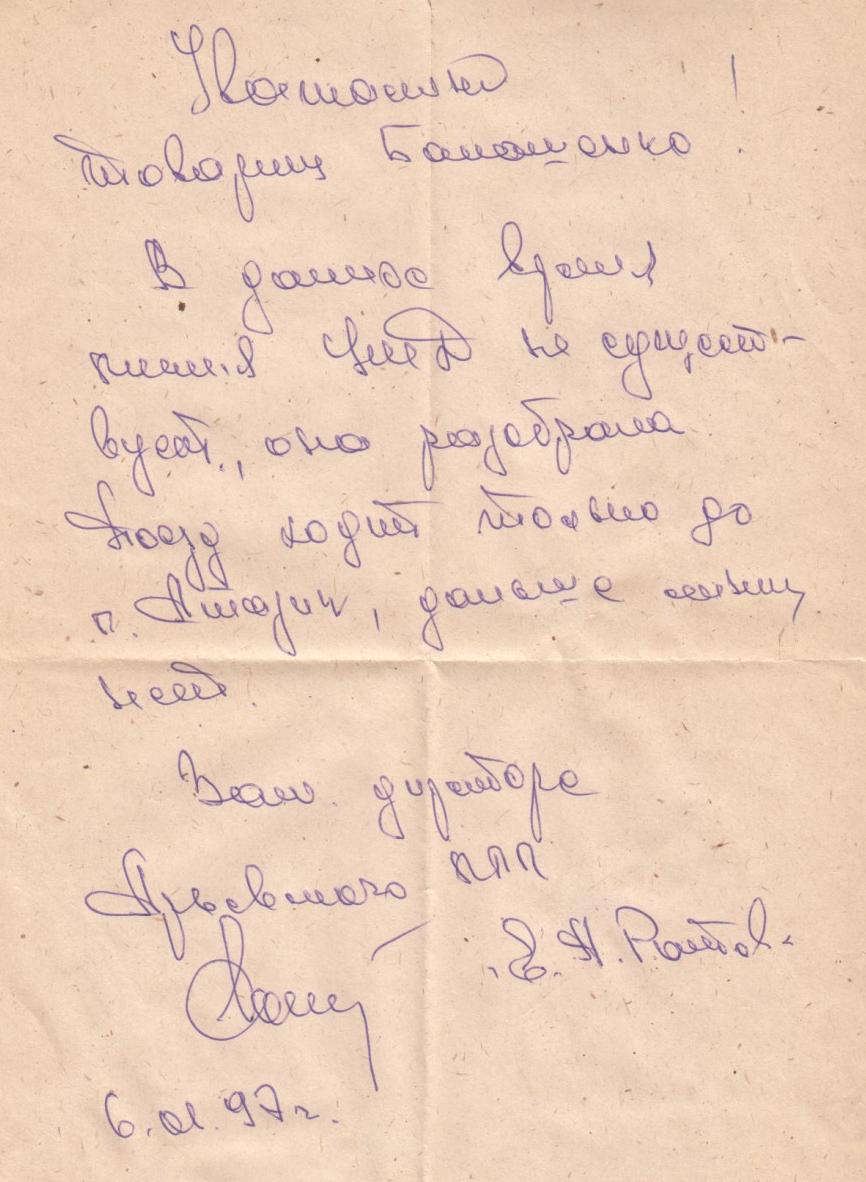 Уважаемый
товарищ Балашенко!
В данное время
линия УЖД не сущест-
вует., она разобрана.
Поезд ходит только до
п. , дальше линии
нет.
Зам. директора
КПП
6.01.97г.